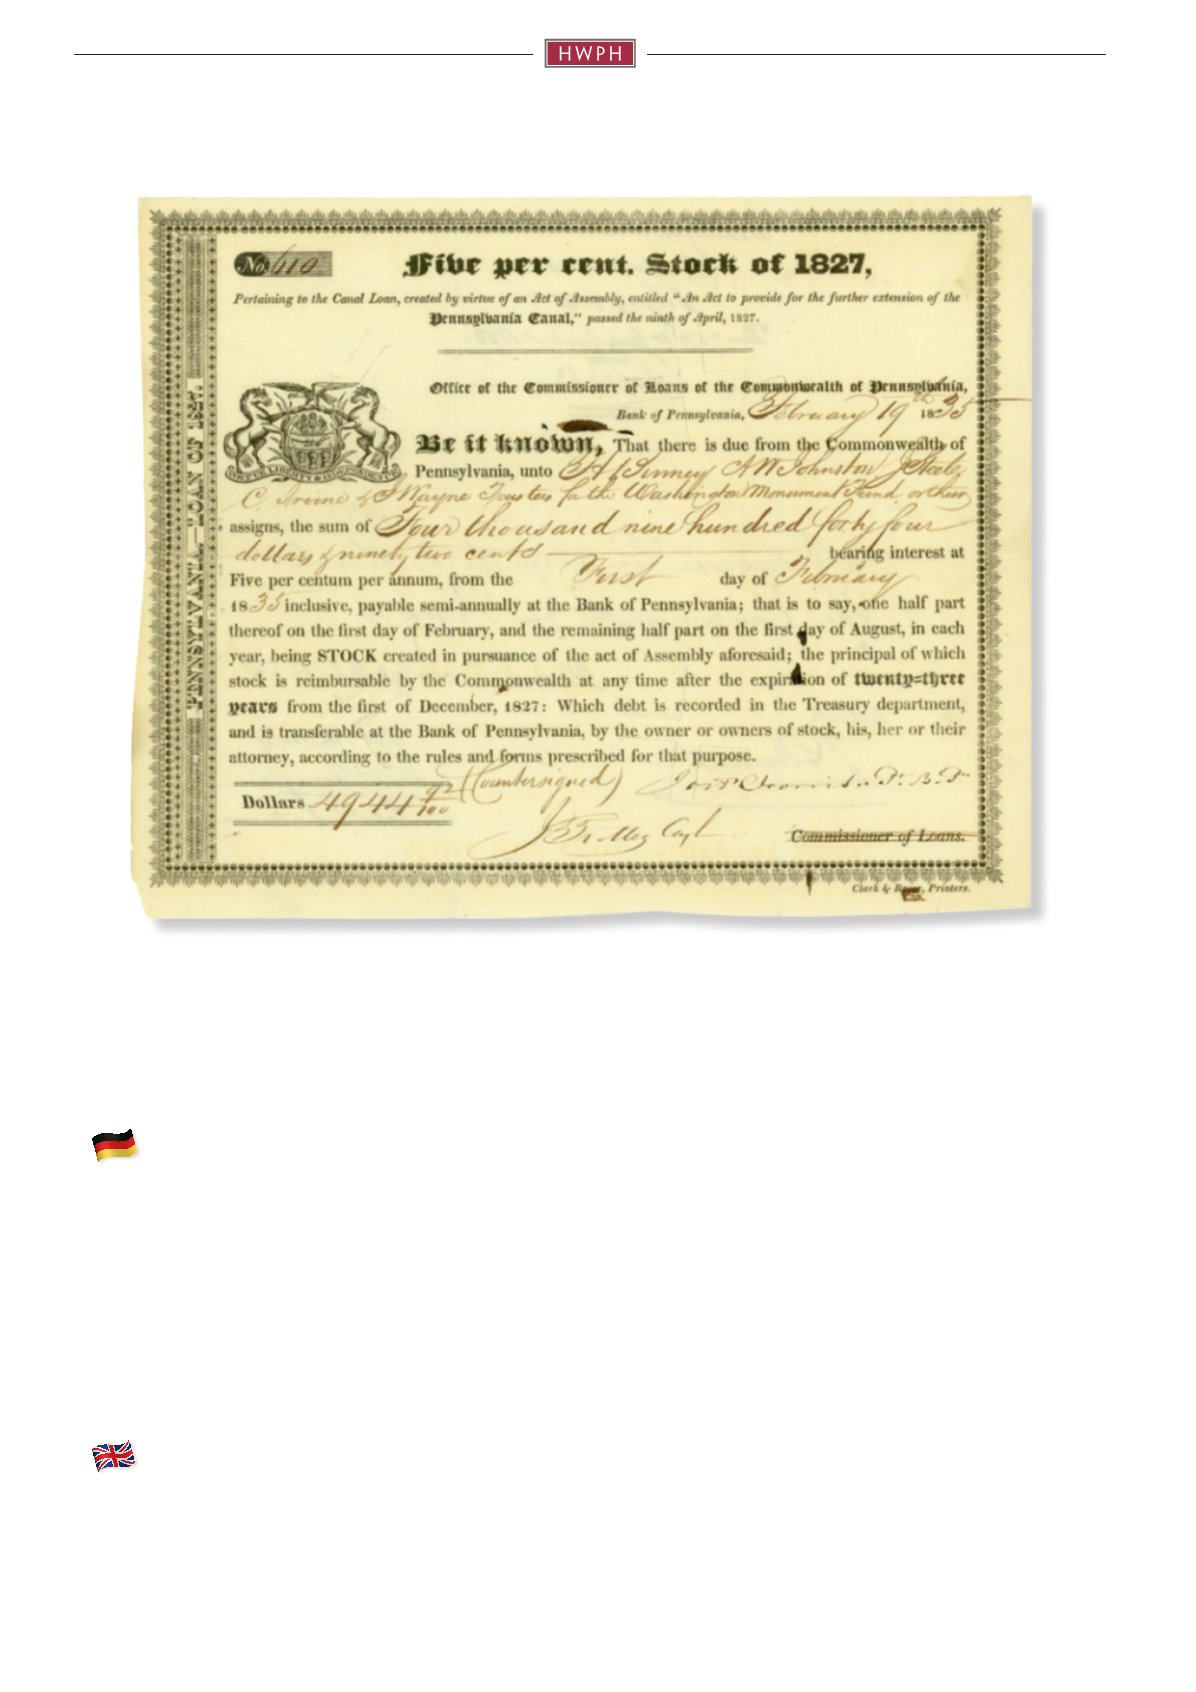 HWPH
No. 610
Five per cent. Stock of 1827,
Pertaining to the Canal Loan, created by virtue of an Act of Assembly, entitled "An Act to provide for the further extension of the
Pennsylvania Canal," passed the ninth of April, 1827.
PENNSYLVANIA—LOAN OF 1827.
Office of the Commissioner of Loans of the Commonwealth of Pennsylvania,
Bank of Pennsylvania, February 19th 1835
VIRTUE LIBERTY & INDEPENDENCE
Be it known, That there is due from the Commonwealth of
Pennsylvania, unto A W Johnston J Steel
C. Irvine & J Wayne Trustees for the Washington Monument Fund or their
assigns, the sum of Four thousand nine hundred forty four
dollars & ninety two cents bearing interest at
Five per centum per annum, from the First day of February
1835 inclusive, payable semi-annually at the Bank of Pennsylvania; that is to say, one half part
thereof on the first day of February, and the remaining half part on the first day of August, in each
year, being STOCK created in pursuance of the act of Assembly aforesaid; the principal of which
stock is reimbursable by the Commonwealth at any time after the expiration of twenty-three
years from the first of December, 1827: Which debt is recorded in the Treasury department,
and is transferable at the Bank of Pennsylvania, by the owner or owners of stock, his, her or their
attorney, according to the rules and forms prescribed for that purpose.
Dollars 4944 92/100 (Countersigned)
Commissioner of Loans.
Clark & Raser, Printers.